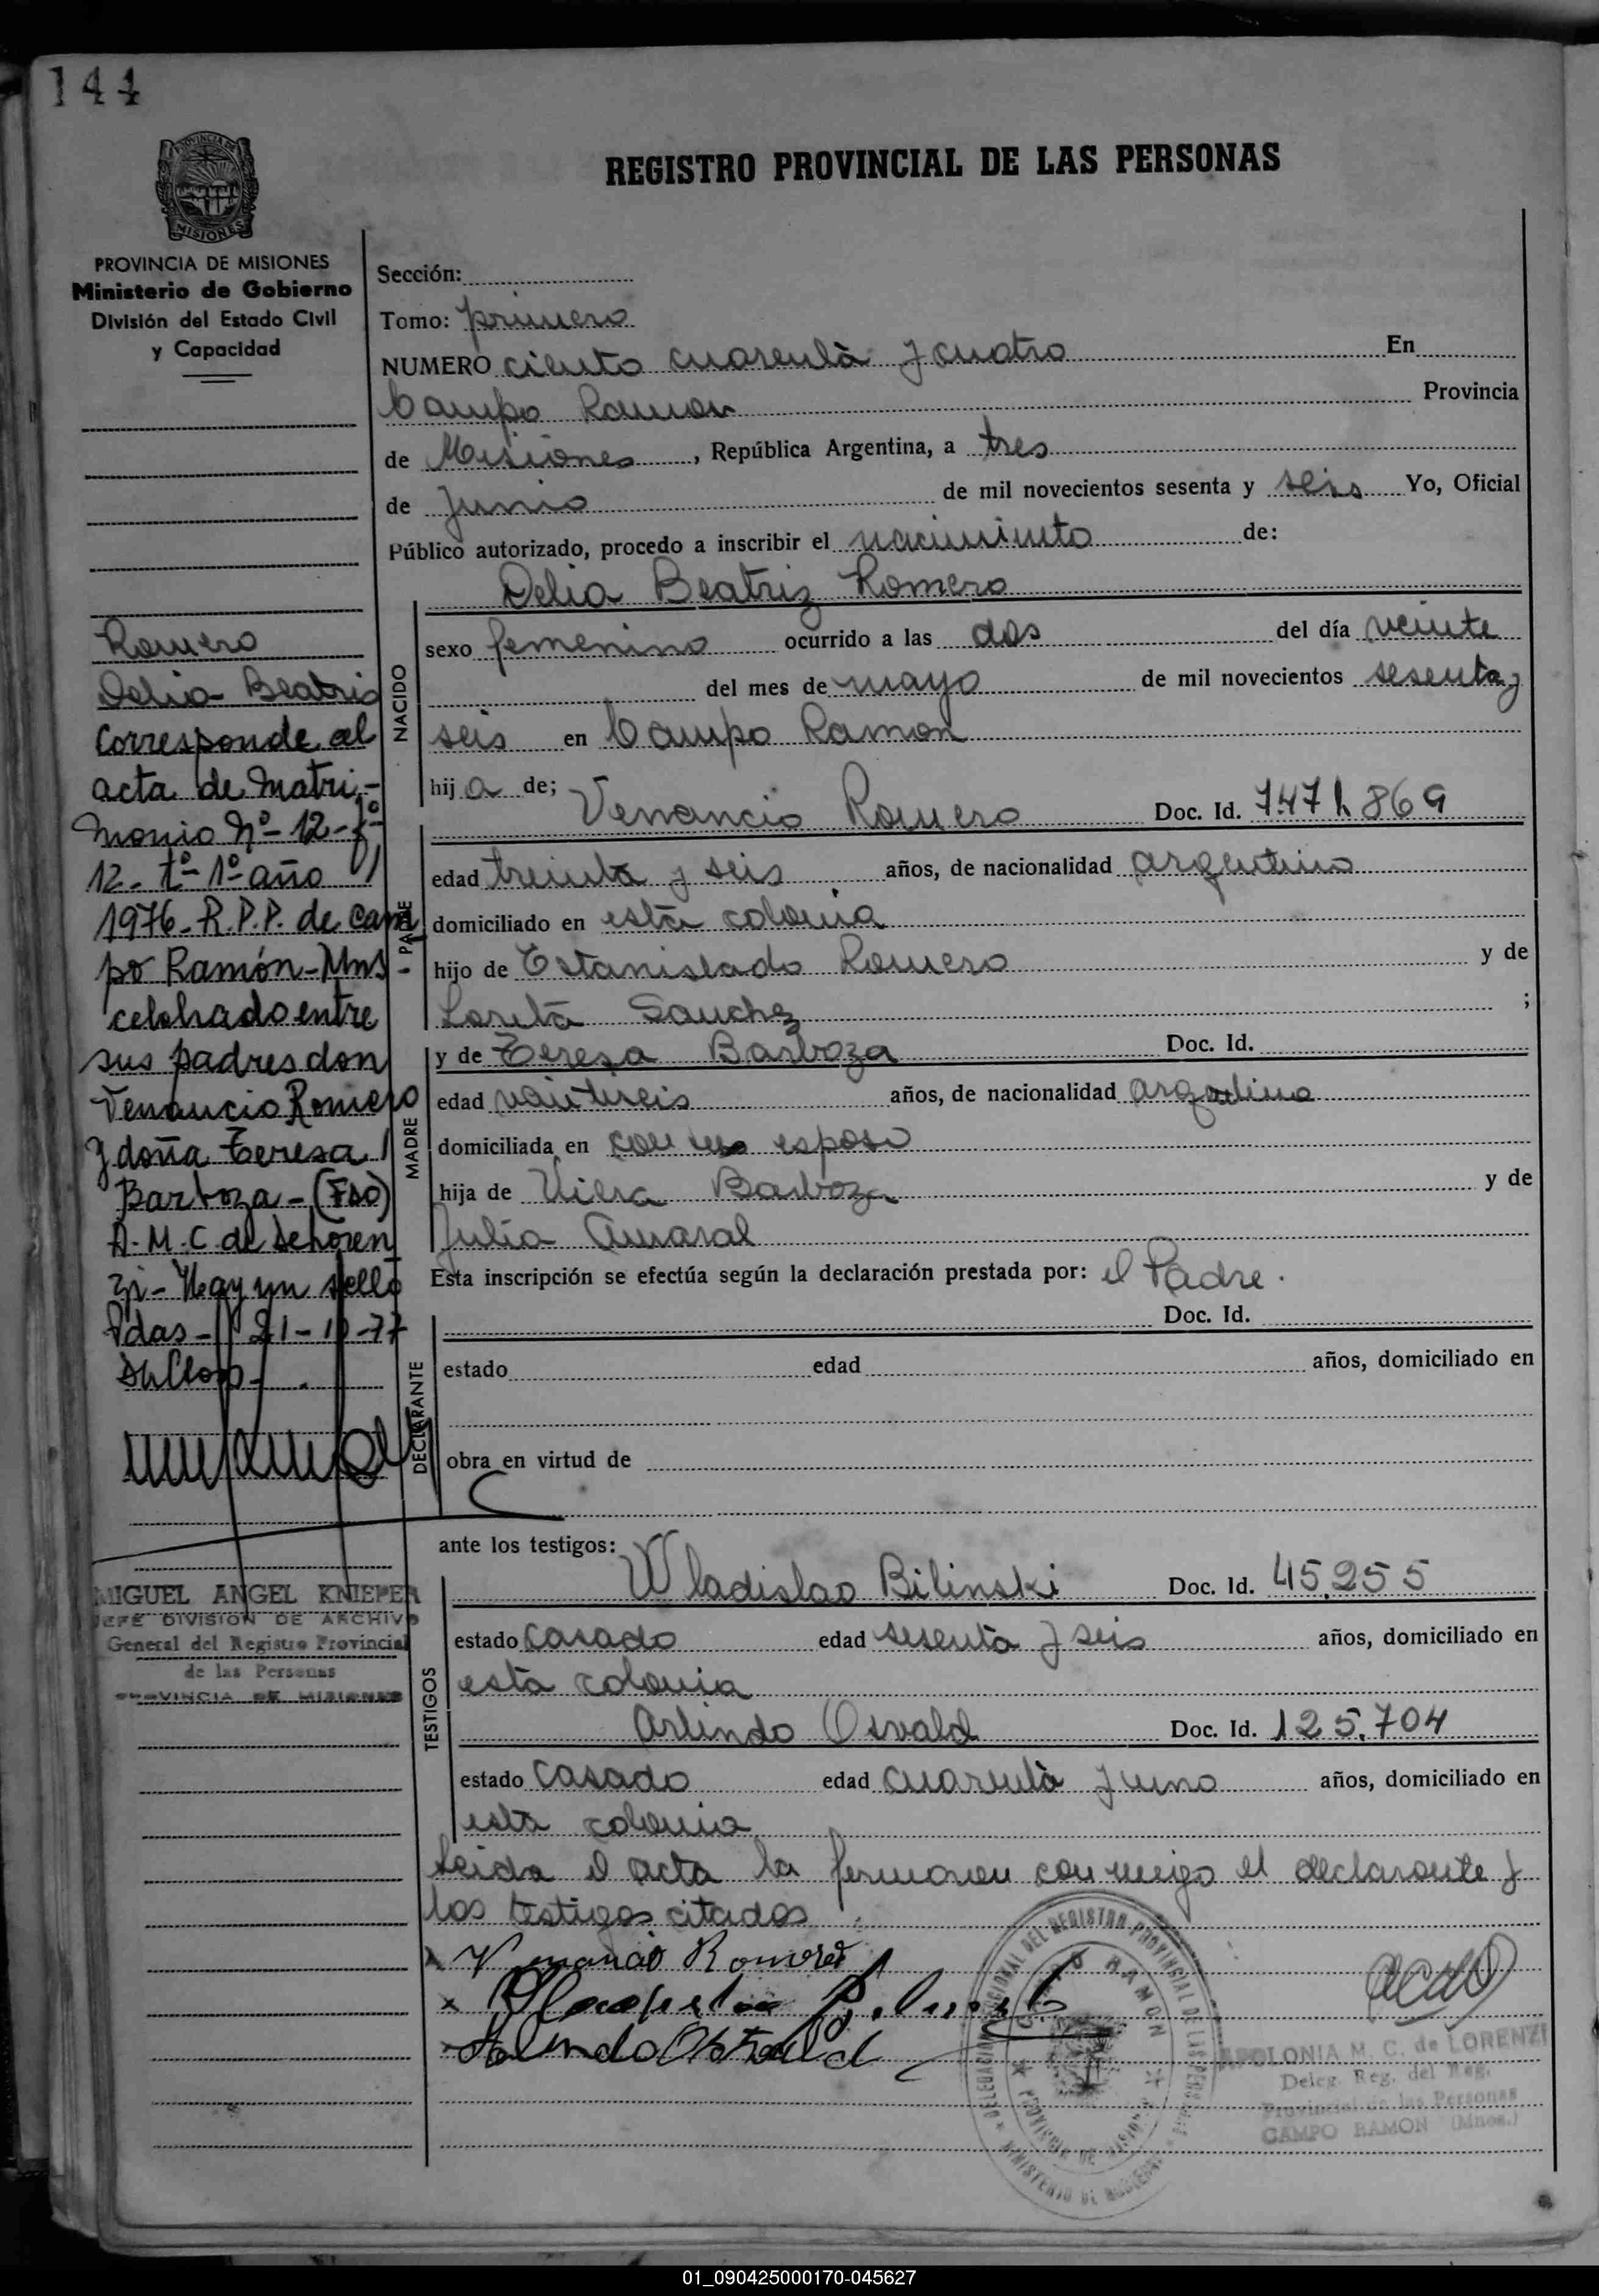 144
PROVINCIA DE
MISIONES
REGISTRO PROVINCIAL DE LAS PERSONAS
PROVINCIA DE MISIONES
Ministerio de Gobierno
División del Estado Civil
y Capacidad
Sección:
Tomo: primero
NUMERO ciento cuarenta y cuatro En
Campo Ramon Provincia
de Misiones, República Argentina, a tres
de Junio de mil novecientos sesenta y seis Yo, Oficial
Público autorizado, procedo a inscribir el nacimiento de:
Delia Beatriz Romero
NACIDO
sexo femenino ocurrido a las dos del día veinte
del mes de mayo de mil novecientos sesenta y
seis en Campo Ramon
hija de; Venancio Romero Doc. Id. 7.471.869
PADRE
edad treinta y seis años, de nacionalidad argentino
domiciliado en esta colonia
hijo de Estanislado Romero y de
Sanchez ;
y de Teresa Barboza Doc. Id.
MADRE
edad años, de nacionalidad
domiciliada en con su esposo
hija de Barboza y de
Julia Amaral
Esta inscripción se efectúa según la declaración prestada por: el Padre.
Doc. Id.
DECLARANTE
estado edad años, domiciliado en
obra en virtud de
ante los testigos:
Wladislao Bilinski Doc. Id. 45.255
TESTIGOS
estado casado edad sesenta y seis años, domiciliado en
esta colonia
Arlindo Osvald Doc. Id. 125.704
estado casado edad cuarenta y uno años, domiciliado en
esta colonia
Leida el acta la firmaron conmigo el declarante y
los testigos citados
Romero
Delia Beatris
Corresponde al
acta de Matri-
monio Nº 12-fº
12- tº- 1º año
1976- R.P.P. de Cam
po Ramón-Mns-
celebrado entre
sus padres don
Venancio Romero
y doña Teresa
Barboza- (FDO)
A. M. C. de Deloren
zi- Hay un sello
Pdas- 21-10-77
MIGUEL ANGEL KNIEPER
JEFE DIVISION DE ARCHIVO
General del Registro Provincial
de las Personas
PROVINCIA DE MISIONES
Venancio Romero
APOLONIA M. C. de LORENZI
Deleg. Reg. del Reg.
Provincial de las Personas
CAMPO RAMON (Mnes.)
01_090425000170-045627